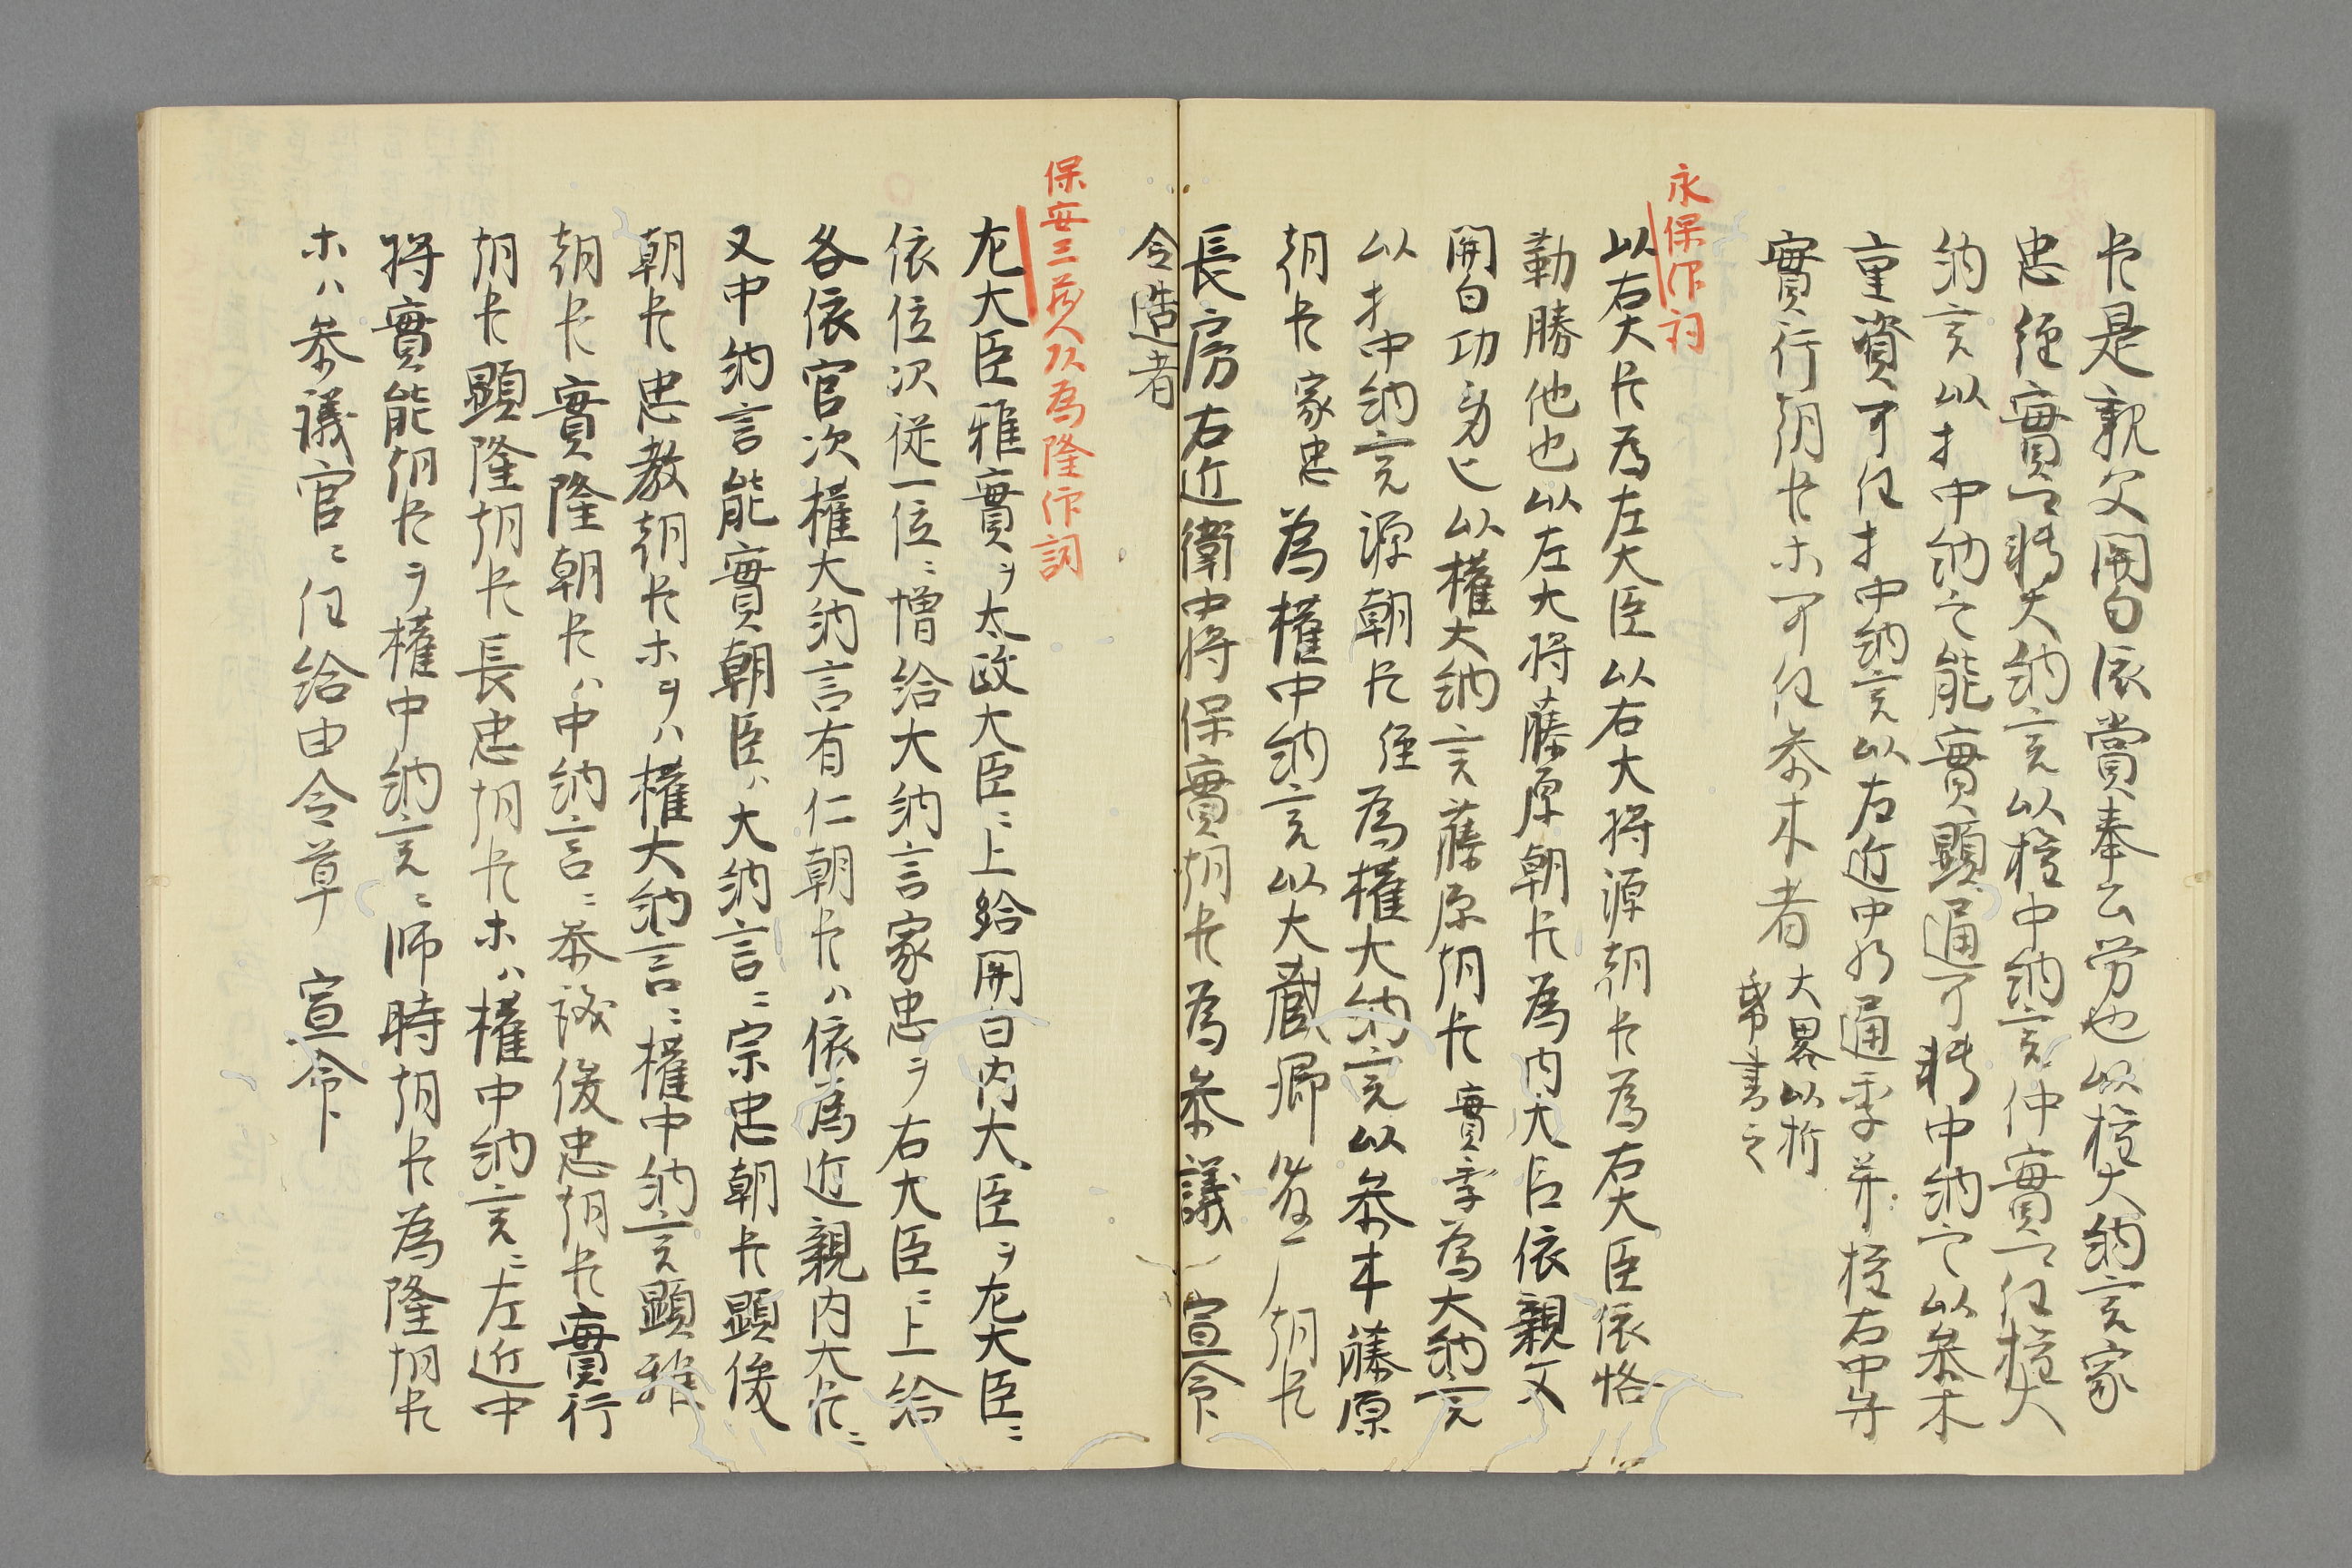 臣是親父関白依賞奉公労也以権大納言家
忠経實可転大納言以権中納言仲實可任権大
納言以才中納言能實顕通可転中納言以参木
重資可任才中納言以右近中将通季并権右中弁
實行朝臣ホ可任参木者大畧以折
帋書之
永保作詞
以右大臣為左大臣以右大将源朝臣為右大臣依恪
勤勝他也以左大将藤原朝臣為内大臣依親父
関白功労也以権大納言藤原朝臣實季為大納言
以才中納言源朝臣経為権大納言以参木藤原
朝臣家忠為権中納言以大蔵卿 朝臣
長房右近衛中将保實朝臣為参議宣命
令造者
保安三蔵人次為隆作詞
左大臣雅實ヲ太政大臣ニ上給関白内大臣ヲ左大臣ニ
依位次従一位ニ増給大納言家忠ヲ右大臣ニ上給
各依官次権大納言有仁朝臣ハ依為近親内大臣ニ
又中納言能實朝臣ハ大納言ニ宗忠朝臣顕俊
朝臣忠教朝臣ホヲハ権大納言ニ権中納言顕雅
朝臣實隆朝臣ハ中納言ニ参議俊忠朝臣實行
朝臣顕隆朝臣長忠朝臣ホハ権中納言ニ左近中
将實能朝臣ヲ権中納言ニ師時朝臣為隆朝臣
ホハ参議官ニ任給由令草 宣命